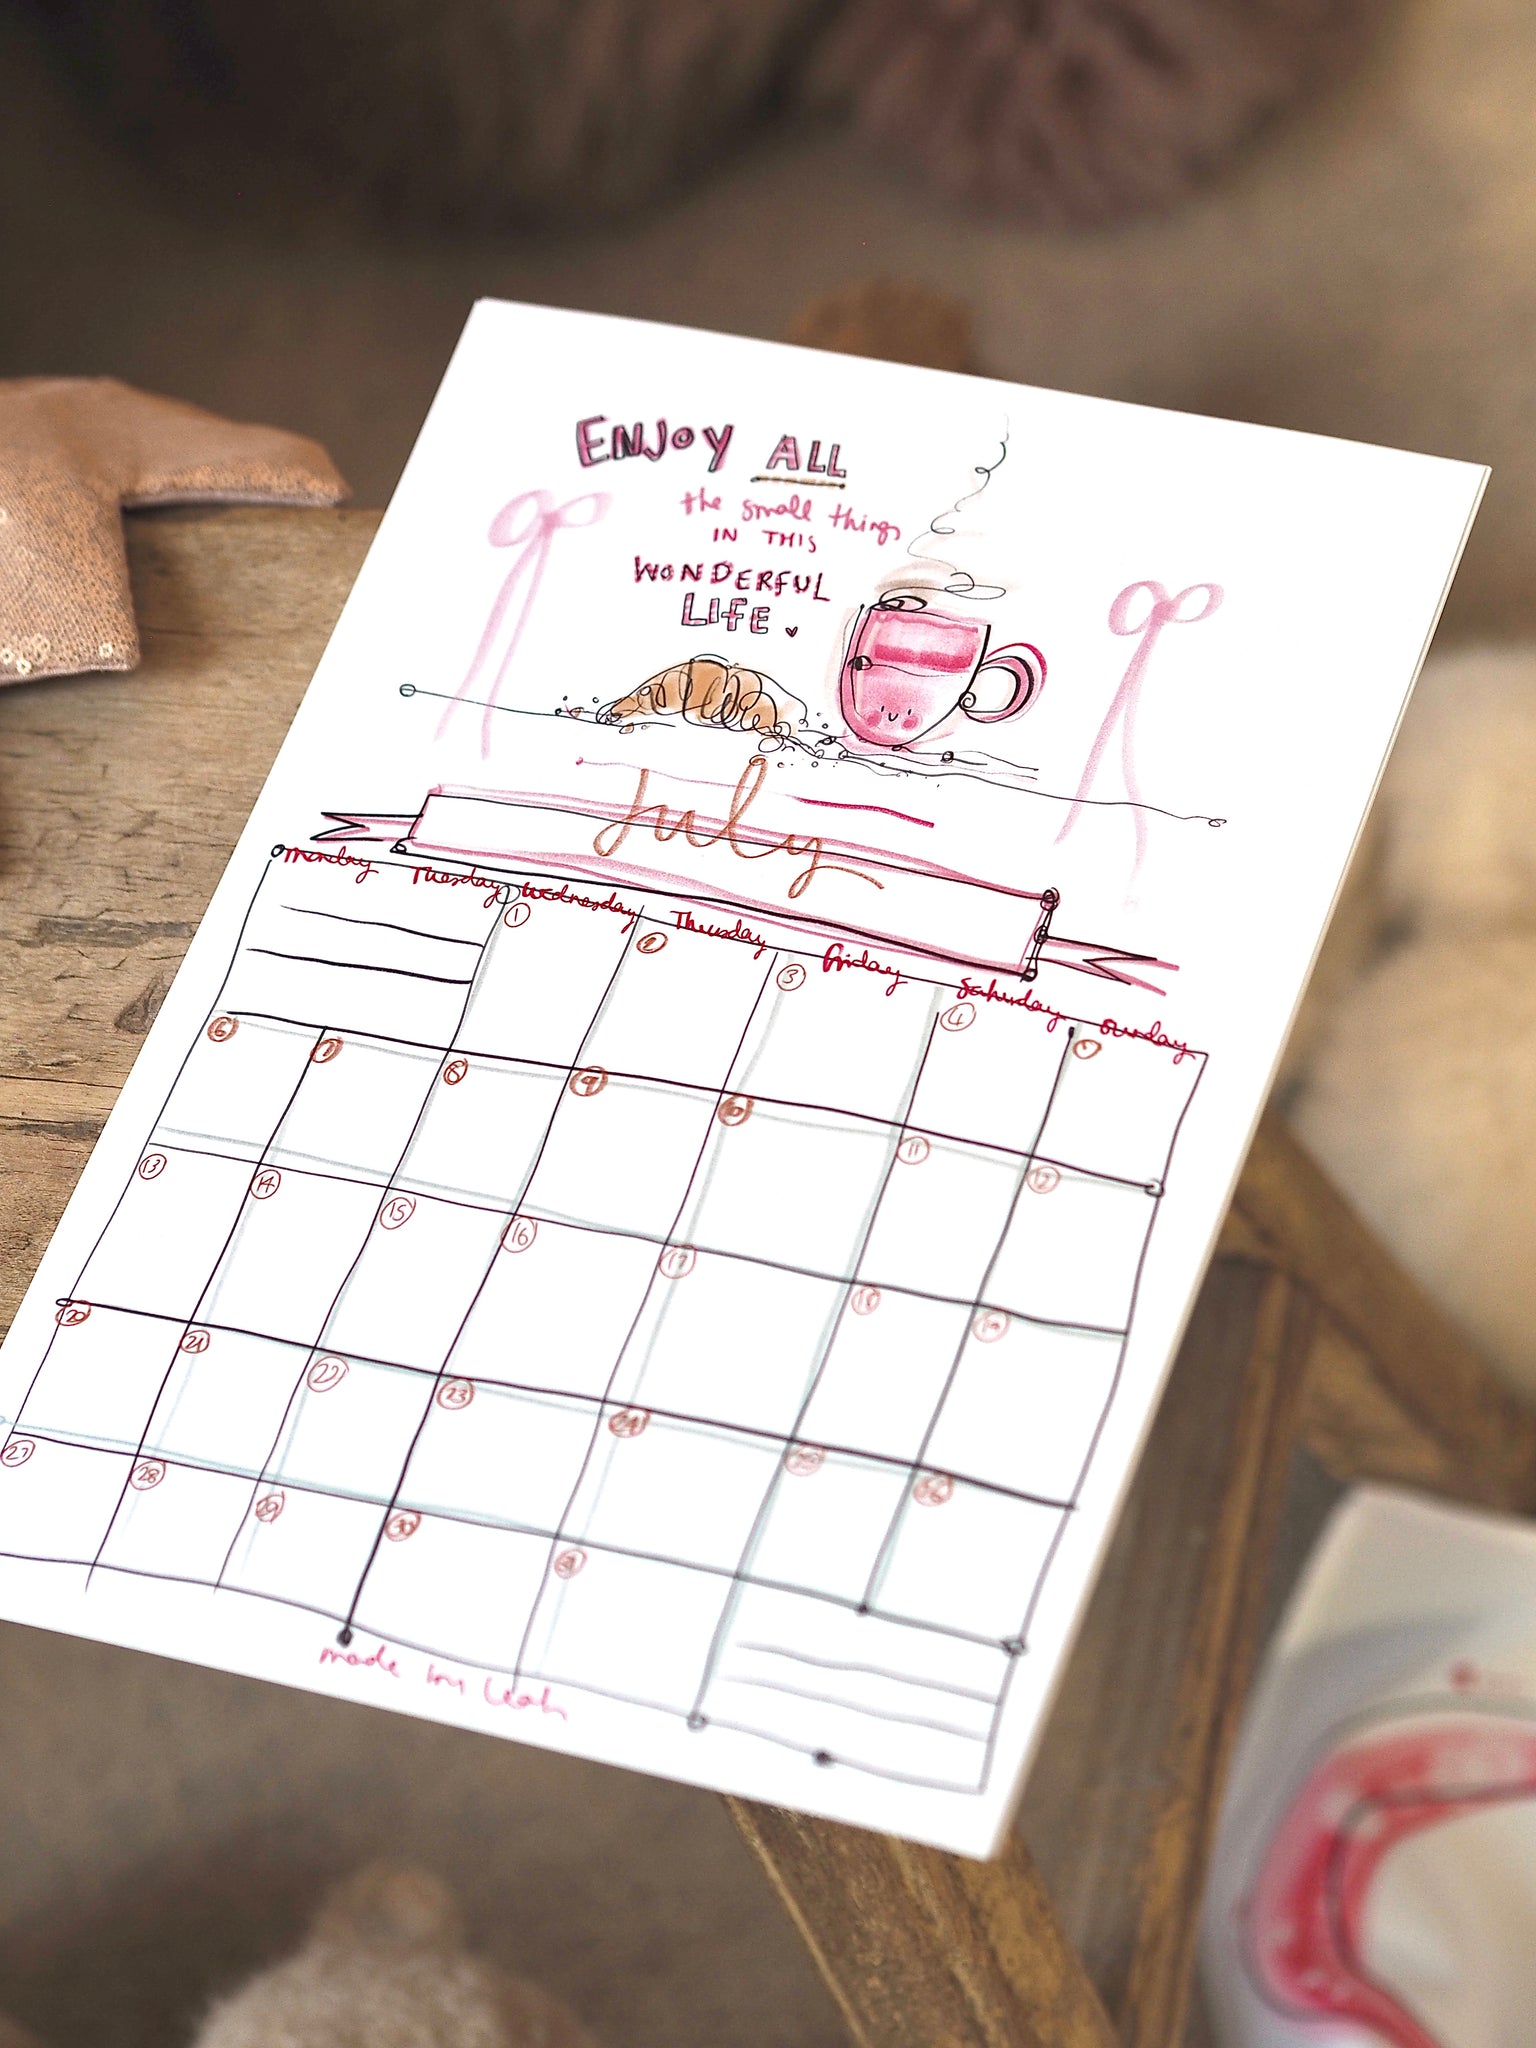 ENJOY ALL
the small things
IN THIS
WONDERFUL
LIFE.
July
Monday Tuesday Wednesday Thursday Friday Saturday Sunday
1 2 3 4
6 7 8 9 10 11 12
13 14 15 16 17 18 19
20 21 22 23 24 25 26
27 28 29 30 31
made by Leah